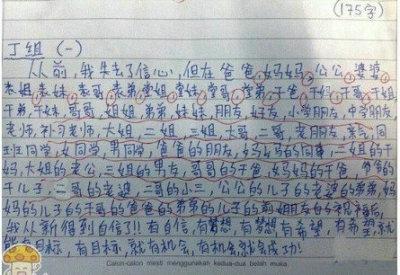 (175字)
丁组 (一)
从前,我失去了信心,但在爸爸,妈妈,公公,婆婆,
表姐,表妹,表哥,表弟,堂姐,堂妹,堂哥,堂弟,干爸,干妈,干哥,干姐,
干弟,干妹,哥哥,姐姐,弟弟,妹妹,朋友,好友,小学朋友,中学朋友,
老师,补习老师,大姐,二姐,三姐,大哥,二哥,老朋友,同
班同学,女同学,男同学,爸爸的朋友,妈妈的同事,二姐的干
妈,大姐的老公,三姐的男友,哥哥的干爸,妈妈的干爸,爸爸的
干儿子,二哥的老婆,二哥的小三,公公的儿子的老婆的弟弟,妈
妈的儿子的干哥的爸爸的弟弟的儿子的前女朋友的祝福后,
我从新得到自信了!!有自信,有梦想,有梦想有希望,有希望,就
有目标,有目标,就有机会,有机会就会成功!
Calon-calon mesti menggunakan kedua-dua belah muka